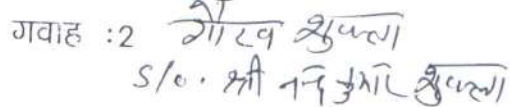 गवाह :2 गौरव शुक्ला
S/o. श्री नन्द कुमार शुक्ला